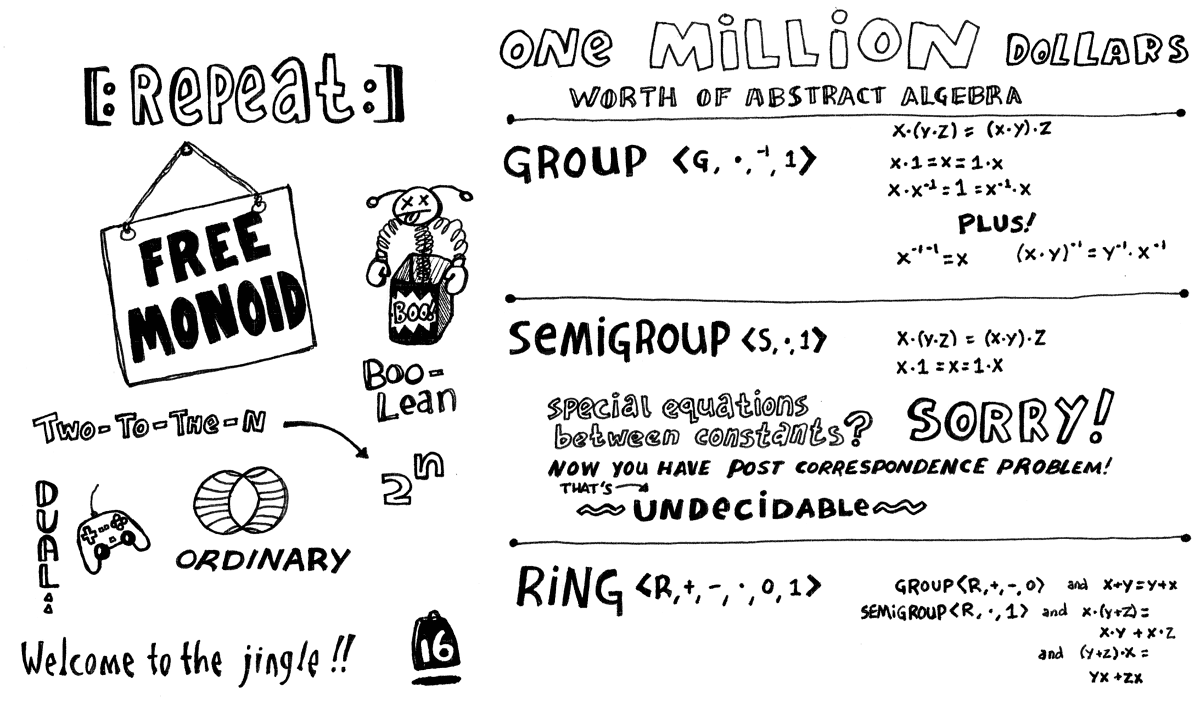 [:REPEAT:]
FREE
MONOID
BOO!
BOO-
LEAN
TWO-TO-THE-N
2ⁿ
DUAL:
ORDINARY
Welcome to the jingle!!
16
ONE MILLION DOLLARS
WORTH OF ABSTRACT ALGEBRA
GROUP <G, ·, ⁻¹, 1>
x·(y·z) = (x·y)·z
x·1 = x = 1·x
x·x⁻¹ = 1 = x⁻¹·x
PLUS!
x⁻¹⁻¹ = x (x·y)⁻¹ = y⁻¹·x⁻¹
SEMIGROUP <S, ·, 1>
x·(y·z) = (x·y)·z
x·1 = x = 1·x
special equations
between constants?
SORRY!
NOW YOU HAVE POST CORRESPONDENCE PROBLEM!
THAT'S
UNDECIDABLE
RING <R, +, -, ·, 0, 1>
GROUP<R, +, -, 0> and x+y=y+x
SEMIGROUP<R, ·, 1> and x·(y+z)=
x·y + x·z
and (y+z)·x =
yx + zx